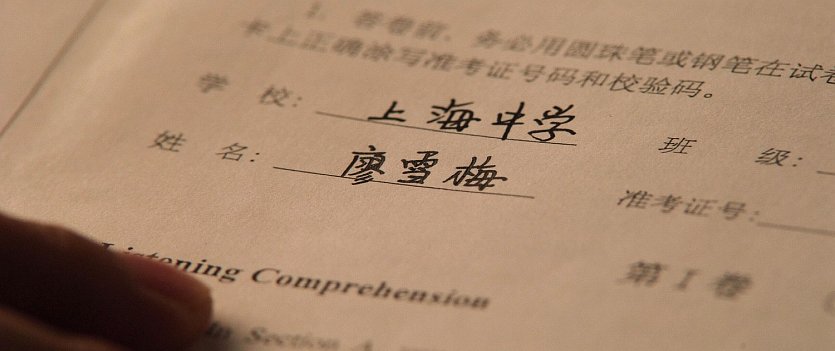 1. 答卷前，务必用圆珠笔或钢笔在试卷
卡上正确涂写准考证号码和校验码。
学 校：上海中学 班 级：
姓 名：廖雪梅 准考证号：
第 I 卷
Listening Comprehension
In Section A,